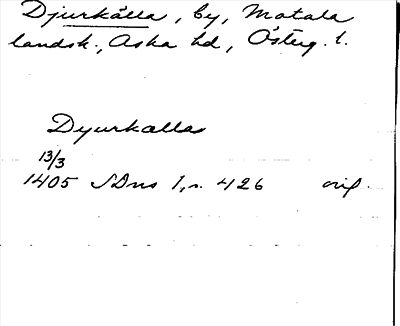 Djurkälla, by, Motala
landsk., Aska hd, Österg. l.
Dyurkalla
13/3
1405 SDns 1, s. 426 orig.